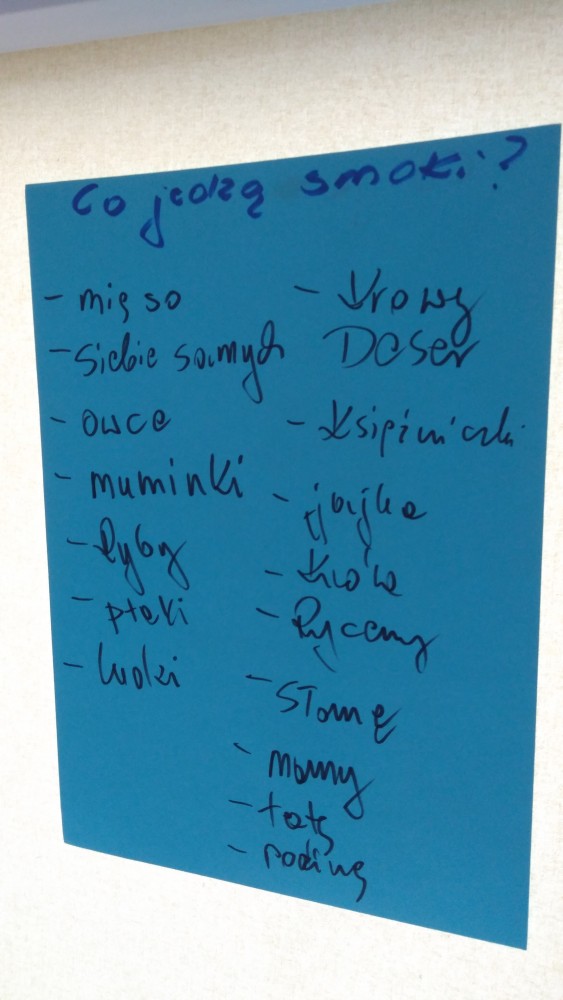 Co jedzą smoki?
- mięso
- siebie samych
- owce
- muminki
- Ryby
- ptaki
- ludzi
- Krowy
Deser
- Księżniczki
- jajka
- Króla
- Rycerzy
- Słomę
- mamy
- tatę
- rodzinę